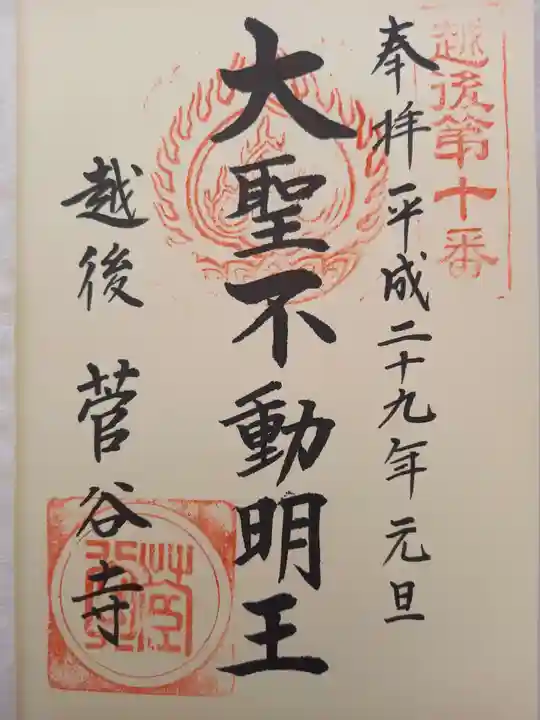 越後第十番
奉拝 平成二十九年元旦
大聖不動明王
越後 菅谷寺